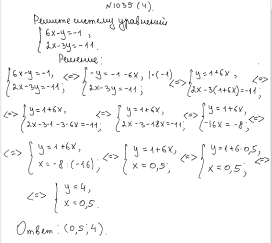 N1035 (4).
Решите систему уравнений
{ 6x-y=-1, 2x-3y=-11.
Решение:
{ 6x-y=-1, 2x-3y=-11; <=> { -y=-1-6x, |·(-1) 2x-3y=-11; <=> { y=1+6x, 2x-3(1+6x)=-11; <=>
<=> { y=1+6x, 2x-3·1-3·6x=-11; <=> { y=1+6x, 2x-3-18x=-11; <=> { y=1+6x, -16x=-8; <=>
<=> { y=1+6x, x=-8:(-16); <=> { y=1+6x, x=0,5; <=> { y=1+6·0,5, x=0,5; <=>
<=> { y=4, x=0,5.
Ответ: (0,5; 4).